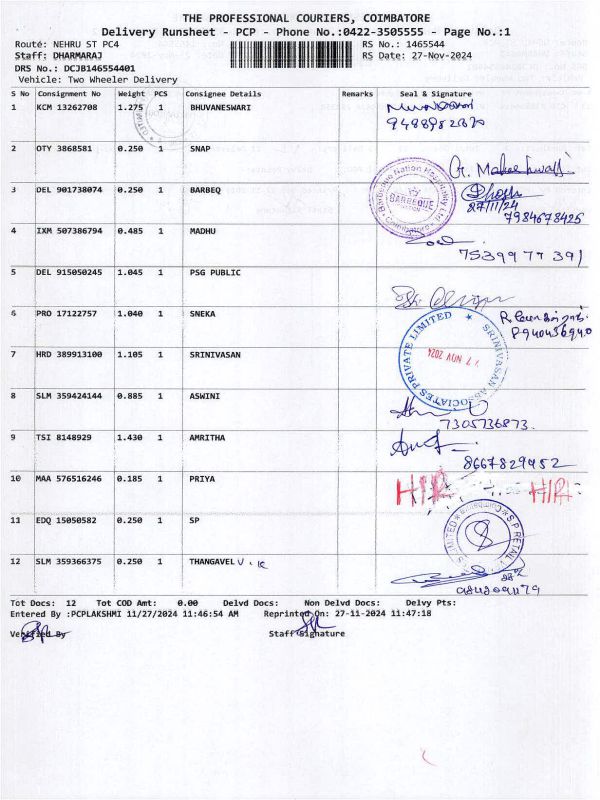 THE PROFESSIONAL COURIERS, COIMBATORE
Delivery Runsheet - PCP - Phone No.:0422-3505555 - Page No.:1
Route: NEHRU ST PC4 RS No.: 1465544
Staff: DHARMARAJ RS Date: 27-Nov-2024
DRS No.: DCJB146554401
Vehicle: Two Wheeler Delivery
S No Consignment No Weight PCS Consignee Details Remarks Seal & Signature
1 KCM 13262708 1.275 1 BHUVANESWARI
2 OTY 3868581 0.250 1 SNAP
G. Maheshwari
3 DEL 901738074 0.250 1 BARBEQ
Barbeque Nation Hospitality Ltd
BARBEQUE
NATION
Coimbatore
27/11/24
7984678425
4 IXM 507386794 0.485 1 MADHU
7539977391
5 DEL 915050245 1.045 1 PSG PUBLIC
6 PRO 17122757 1.040 1 SNEKA
7 HRD 389913100 1.105 1 SRINIVASAN
SRINIVASAN ASSOCIATES PRIVATE LIMITED
27 NOV 2024
8 SLM 359424144 0.885 1 ASWINI
7305736873
9 TSI 8148929 1.430 1 AMRITHA
8667829952
10 MAA 576516246 0.185 1 PRIYA
11 EDQ 15050582 0.250 1 SP
12 SLM 359366375 0.250 1 THANGAVEL V. K
Tot Docs: 12 Tot COD Amt: 0.00 Delvd Docs: Non Delvd Docs: Delvy Pts:
Entered By :PCPLAKSHMI 11/27/2024 11:46:54 AM Reprinted On: 27-11-2024 11:47:18
Verified By Staff Signature